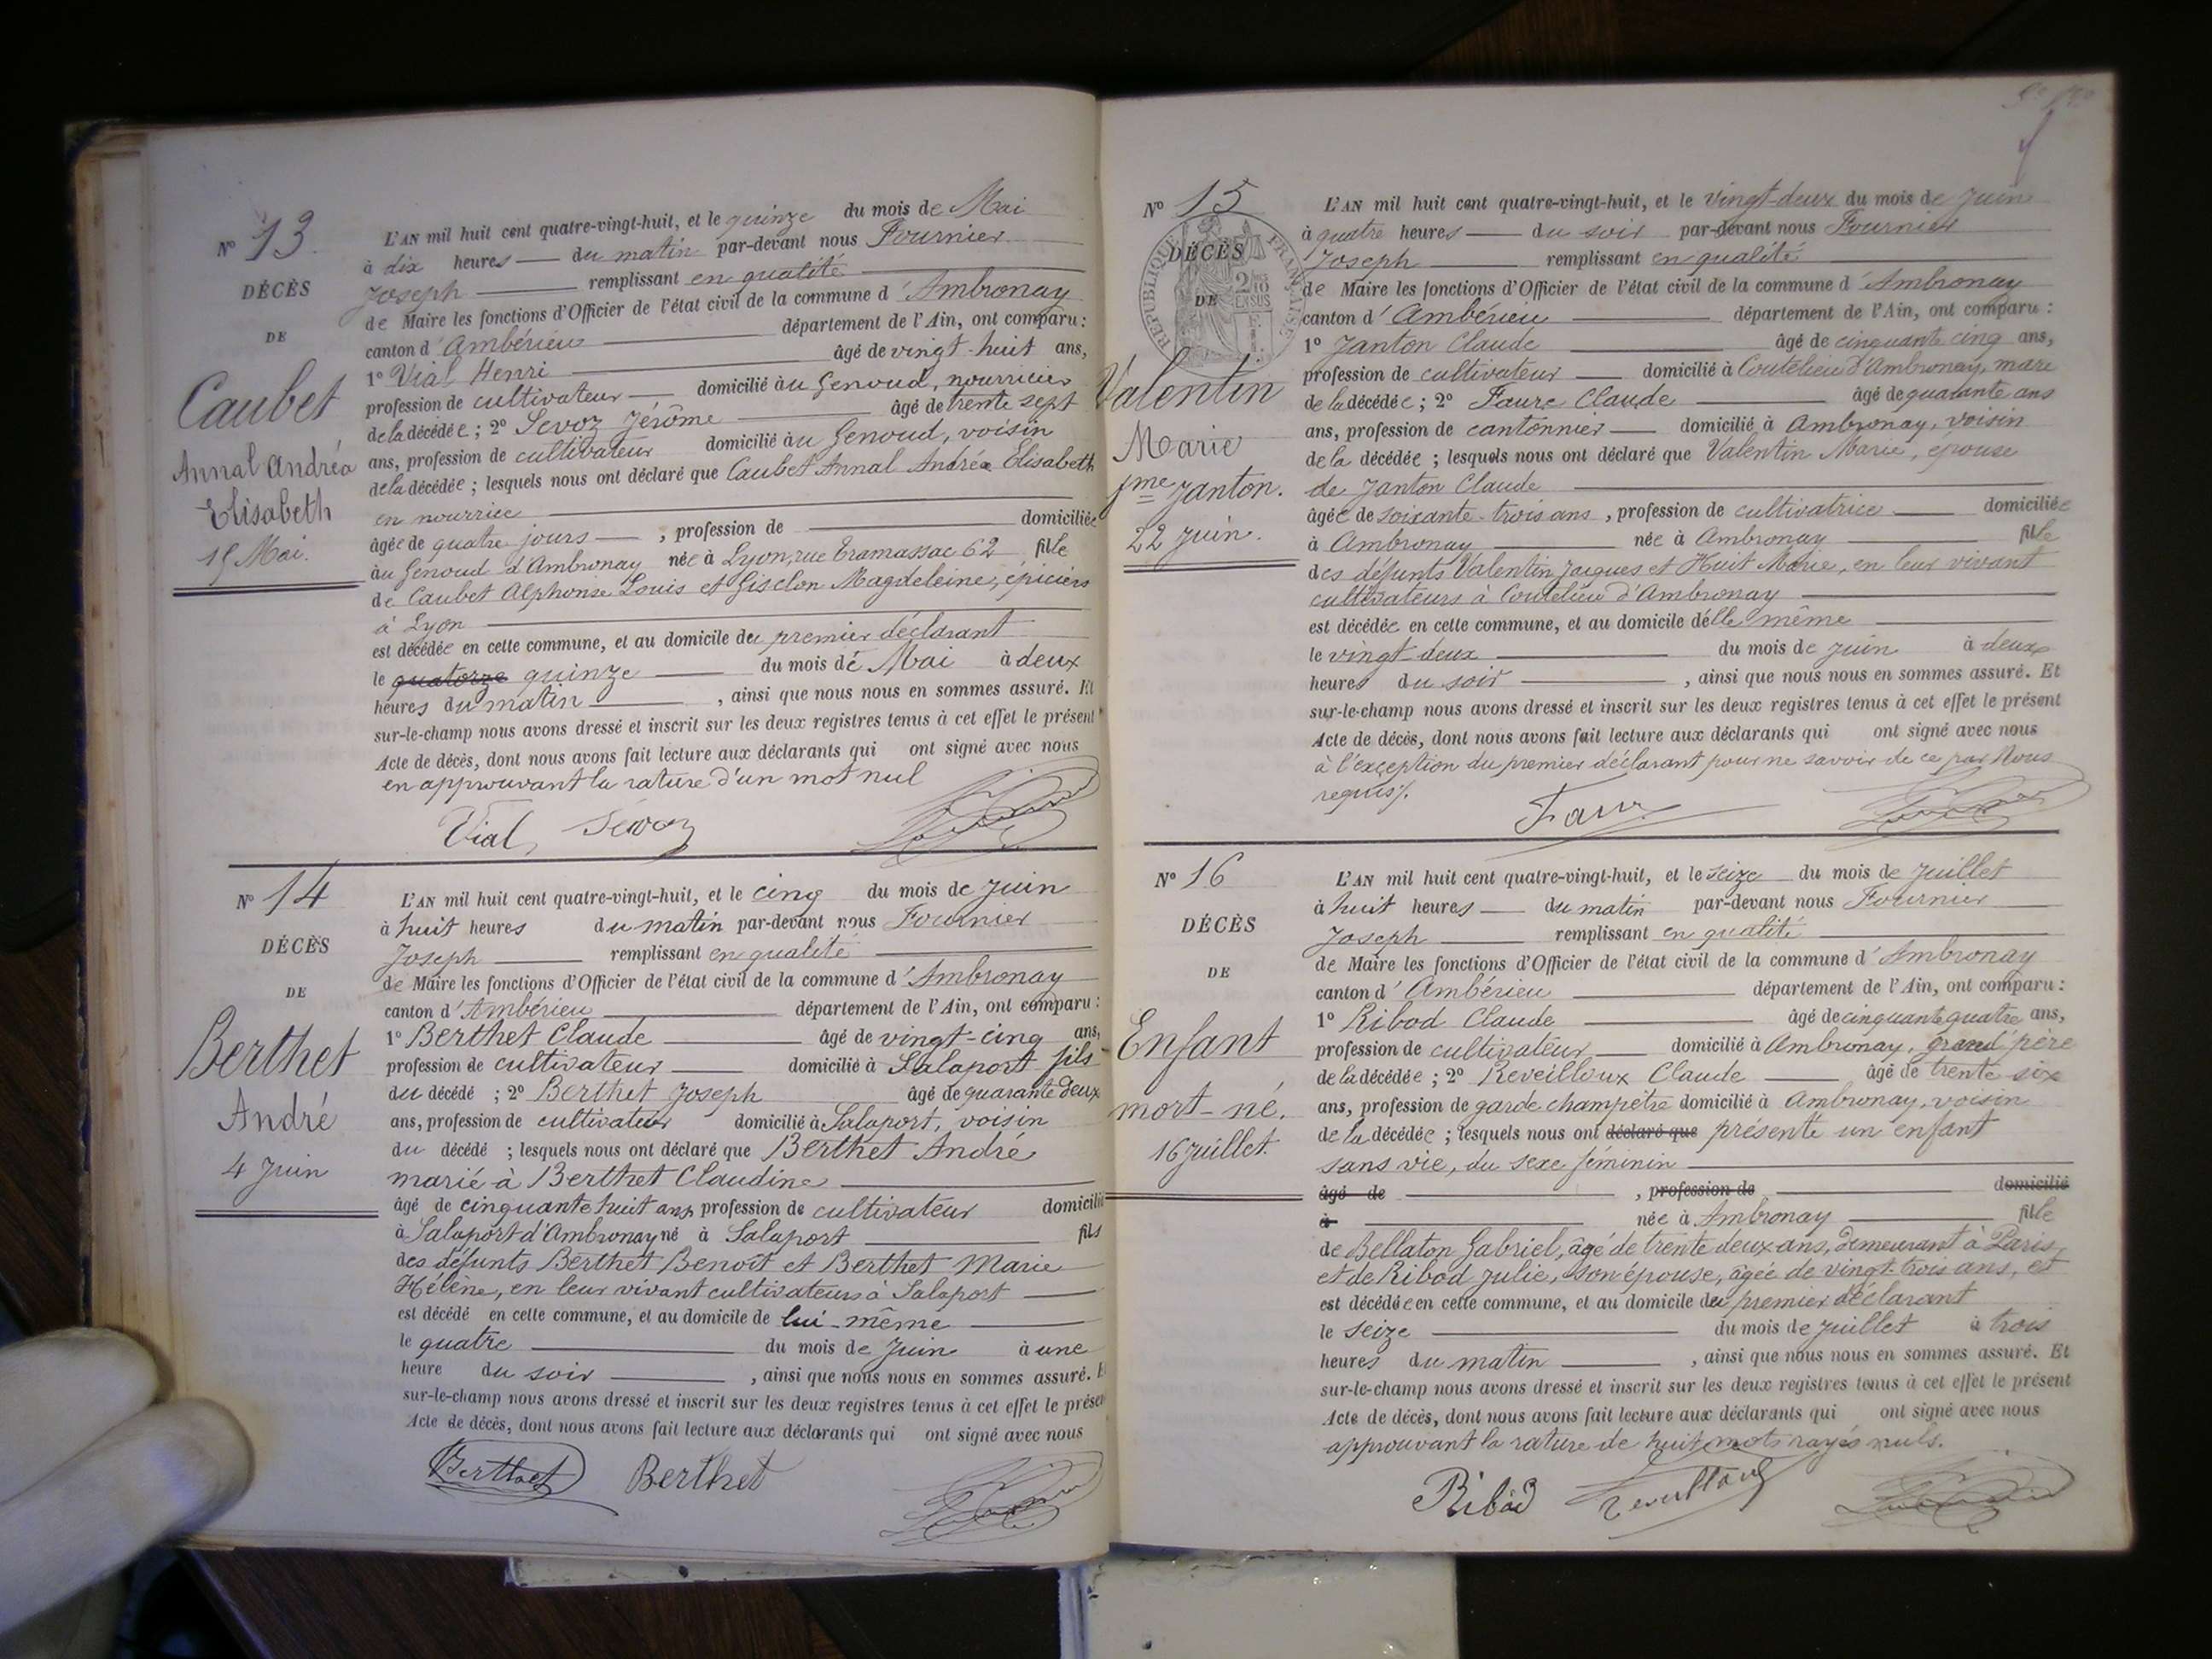 N° 13.
DÉCÈS
DE
Caubet
Annal Andréa
Elisabeth
15 Mai.
L'AN mil huit cent quatre-vingt-huit, et le quinze du mois de Mai
à dix heures du matin par-devant nous Fournier
Joseph remplissant en qualité
de Maire les fonctions d'Officier de l'état civil de la commune d'Ambronay
canton d'Ambérieu département de l'Ain, ont comparu :
1° Vial Henri âgé de vingt-huit ans,
profession de cultivateur domicilié au Genoud, nourricier
de la décédée ; 2° Sevoz Jérôme âgé de trente sept
ans, profession de cultivateur domicilié au Genoud, voisin
de la décédée ; lesquels nous ont déclaré que Caubet Annal Andréa Elisabeth
en nourrice
âgée de quatre jours , profession de domiciliée
au Genoud d'Ambronay née à Lyon, rue Tramassac 62 fille
de Caubet Alphonse Louis et Gisclon Magdeleine, épiciers
à Lyon
est décédée en cette commune, et au domicile du premier déclarant
le quatorze quinze du mois de Mai à deux
heures du matin , ainsi que nous nous en sommes assuré. Et
sur-le-champ nous avons dressé et inscrit sur les deux registres tenus à cet effet le présent
Acte de décès, dont nous avons fait lecture aux déclarants qui ont signé avec nous
en approuvant la rature d'un mot nul
Vial, Sevoz
N° 14
DÉCÈS
DE
Berthet
André
4 Juin
L'AN mil huit cent quatre-vingt-huit, et le cinq du mois de Juin
à huit heures du matin par-devant nous Fournier
Joseph remplissant en qualité
de Maire les fonctions d'Officier de l'état civil de la commune d'Ambronay
canton d'Ambérieu département de l'Ain, ont comparu :
1° Berthet Claude âgé de vingt-cinq ans,
profession de cultivateur domicilié à Salaport fils
du décédé ; 2° Berthet Joseph âgé de quarante deux
ans, profession de cultivateur domicilié à Salaport, voisin
du décédé ; lesquels nous ont déclaré que Berthet André
marié à Berthet Claudine
âgé de cinquante huit ans, profession de cultivateur domicilié
à Salaport d'Ambronay né à Salaport fils
des défunts Berthet Benoît et Berthet Marie
Hélène, en leur vivant cultivateurs à Salaport
est décédé en cette commune, et au domicile de lui-même
le quatre du mois de Juin à une
heure du soir , ainsi que nous nous en sommes assuré. Et
sur-le-champ nous avons dressé et inscrit sur les deux registres tenus à cet effet le présent
Acte de décès, dont nous avons fait lecture aux déclarants qui ont signé avec nous
Berthet Berthet
N° 15
DÉCÈS
DE
RÉPUBLIQUE FRANÇAISE
Valentin
Marie
fme Janton.
22 Juin.
L'AN mil huit cent quatre-vingt-huit, et le vingt-deux du mois de Juin
à quatre heures du soir par-devant nous Fournier
Joseph remplissant en qualité
de Maire les fonctions d'Officier de l'état civil de la commune d'Ambronay
canton d'Ambérieu département de l'Ain, ont comparu :
1° Janton Claude âgé de cinquante cinq ans,
profession de cultivateur domicilié à Coutelieu d'Ambronay, mare
de la décédée ; 2° Faure Claude âgé de quarante ans
ans, profession de cantonnier domicilié à Ambronay, voisin
de la décédée ; lesquels nous ont déclaré que Valentin Marie, épouse
de Janton Claude
âgée de soixante-trois ans , profession de cultivatrice domiciliée
à Ambronay née à Ambronay fille
des défunts Valentin Jacques et Huit Marie, en leur vivant
cultivateurs à Coutelieu d'Ambronay
est décédée en cette commune, et au domicile d'elle même
le vingt-deux du mois de Juin à deux
heures du soir , ainsi que nous nous en sommes assuré. Et
sur-le-champ nous avons dressé et inscrit sur les deux registres tenus à cet effet le présent
Acte de décès, dont nous avons fait lecture aux déclarants qui ont signé avec nous
à l'exception du premier déclarant pour ne savoir de ce par Nous
requis.
Faure
N° 16
DÉCÈS
DE
Enfant
mort-né.
16 Juillet.
L'AN mil huit cent quatre-vingt-huit, et le seize du mois de Juillet
à huit heures du matin par-devant nous Fournier
Joseph remplissant en qualité
de Maire les fonctions d'Officier de l'état civil de la commune d'Ambronay
canton d'Ambérieu département de l'Ain, ont comparu :
1° Ribod Claude âgé de cinquante quatre ans,
profession de cultivateur domicilié à Ambronay, grand père
de la décédée ; 2° Reveilloux Claude âgé de trente six
ans, profession de garde champêtre domicilié à Ambronay, voisin
de la décédée ; lesquels nous ont déclaré que présenté un enfant
sans vie, du sexe féminin
âgé de , profession de domicilié
à née à Ambronay fille
de Bellaton Gabriel, âgé de trente deux ans, demeurant à Paris,
et de Ribod Julie, son épouse, âgée de vingt-trois ans, et
est décédée en cette commune, et au domicile du premier déclarant
le seize du mois de Juillet à trois
heures du matin , ainsi que nous nous en sommes assuré. Et
sur-le-champ nous avons dressé et inscrit sur les deux registres tenus à cet effet le présent
Acte de décès, dont nous avons fait lecture aux déclarants qui ont signé avec nous
approuvant la rature de huit mots rayés nuls.
Ribod